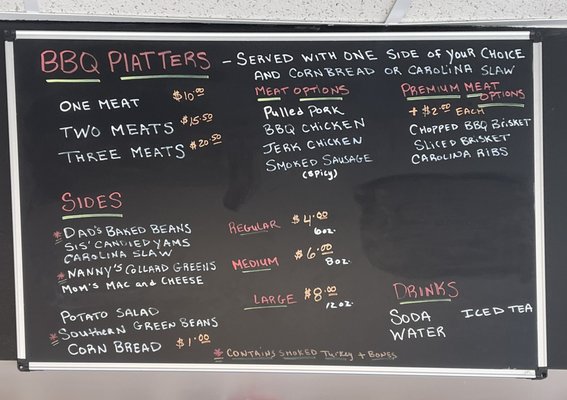 BBQ PLATTERS - SERVED WITH ONE SIDE OF YOUR CHOICE
AND CORNBREAD OR CAROLINA SLAW
ONE MEAT $10.00
TWO MEATS $15.50
THREE MEATS $20.50
MEAT OPTIONS
Pulled Pork
BBQ CHICKEN
JERK CHICKEN
SMOKED SAUSAGE
(Spicy)
PREMIUM MEAT
OPTIONS
+ $2.00 EACH
CHOPPED BBQ BRISKET
SLICED BRISKET
CAROLINA RIBS
SIDES
* DAD'S BAKED BEANS
SIS' CANDIED YAMS
CAROLINA SLAW
* NANNY'S COLLARD GREENS
MOM'S MAC and CHEESE
POTATO SALAD
* SOUTHERN GREEN BEANS
CORN BREAD $1.00
REGULAR $4.00
6oz.
MEDIUM $6.00
8oz.
LARGE $8.00
12oz.
DRINKS
SODA ICED TEA
WATER
* CONTAINS SMOKED Turkey + BONES